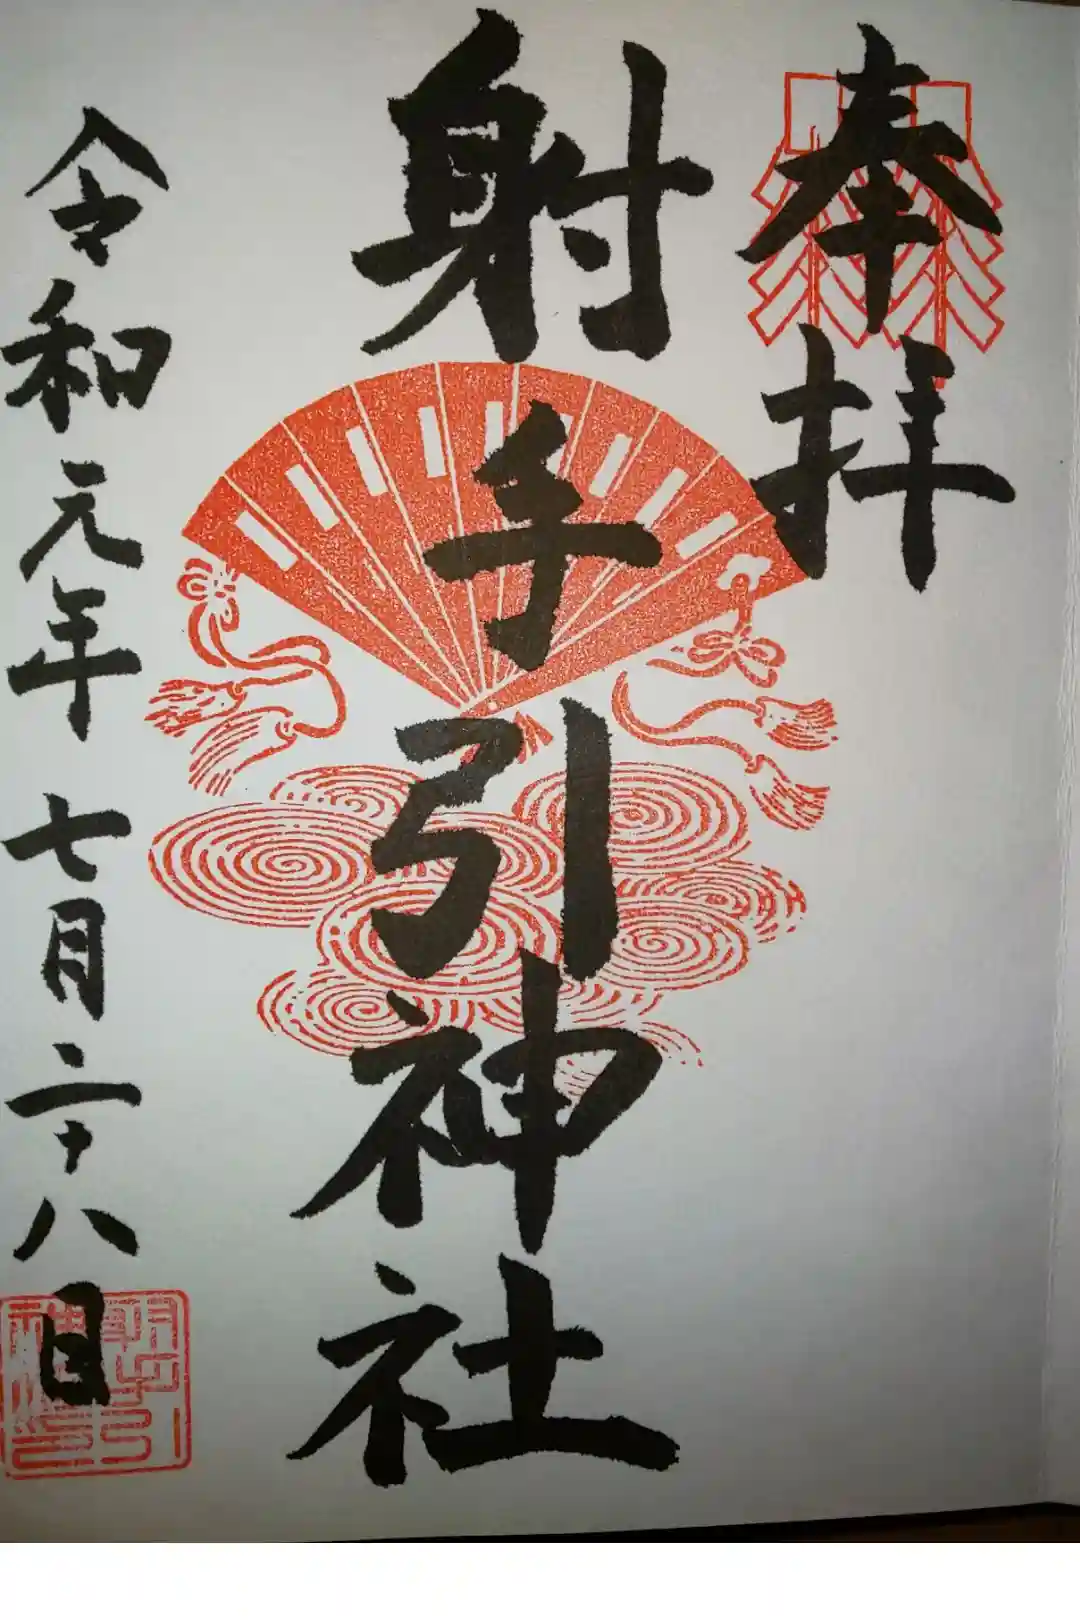 奉拝
射手引神社
令和元年七月二十八日